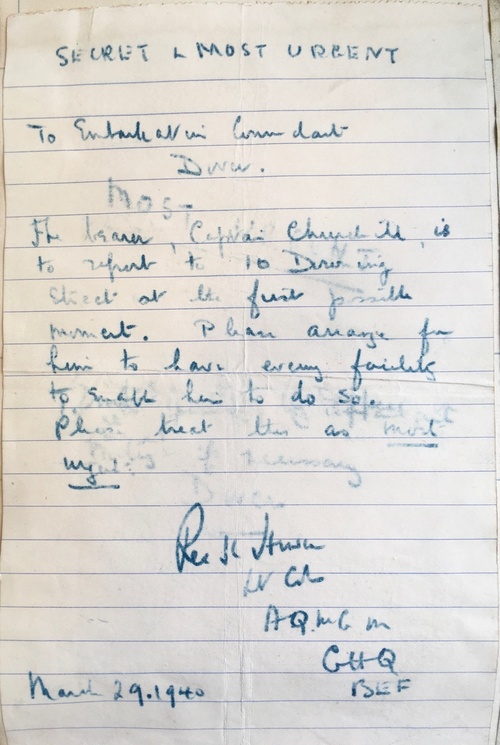 SECRET & MOST URGENT
To Embarkation Commdant
Dover.
MOST
The bearer, Captain Churchill, is
to report to 10 Downing
Street at the first possible
moment. Please arrange for
him to have every facility
to enable him to do so.
Please treat this as most
urgent.
necessary
Lt Col
AQMG
GHQ
BEF
March 29. 1940